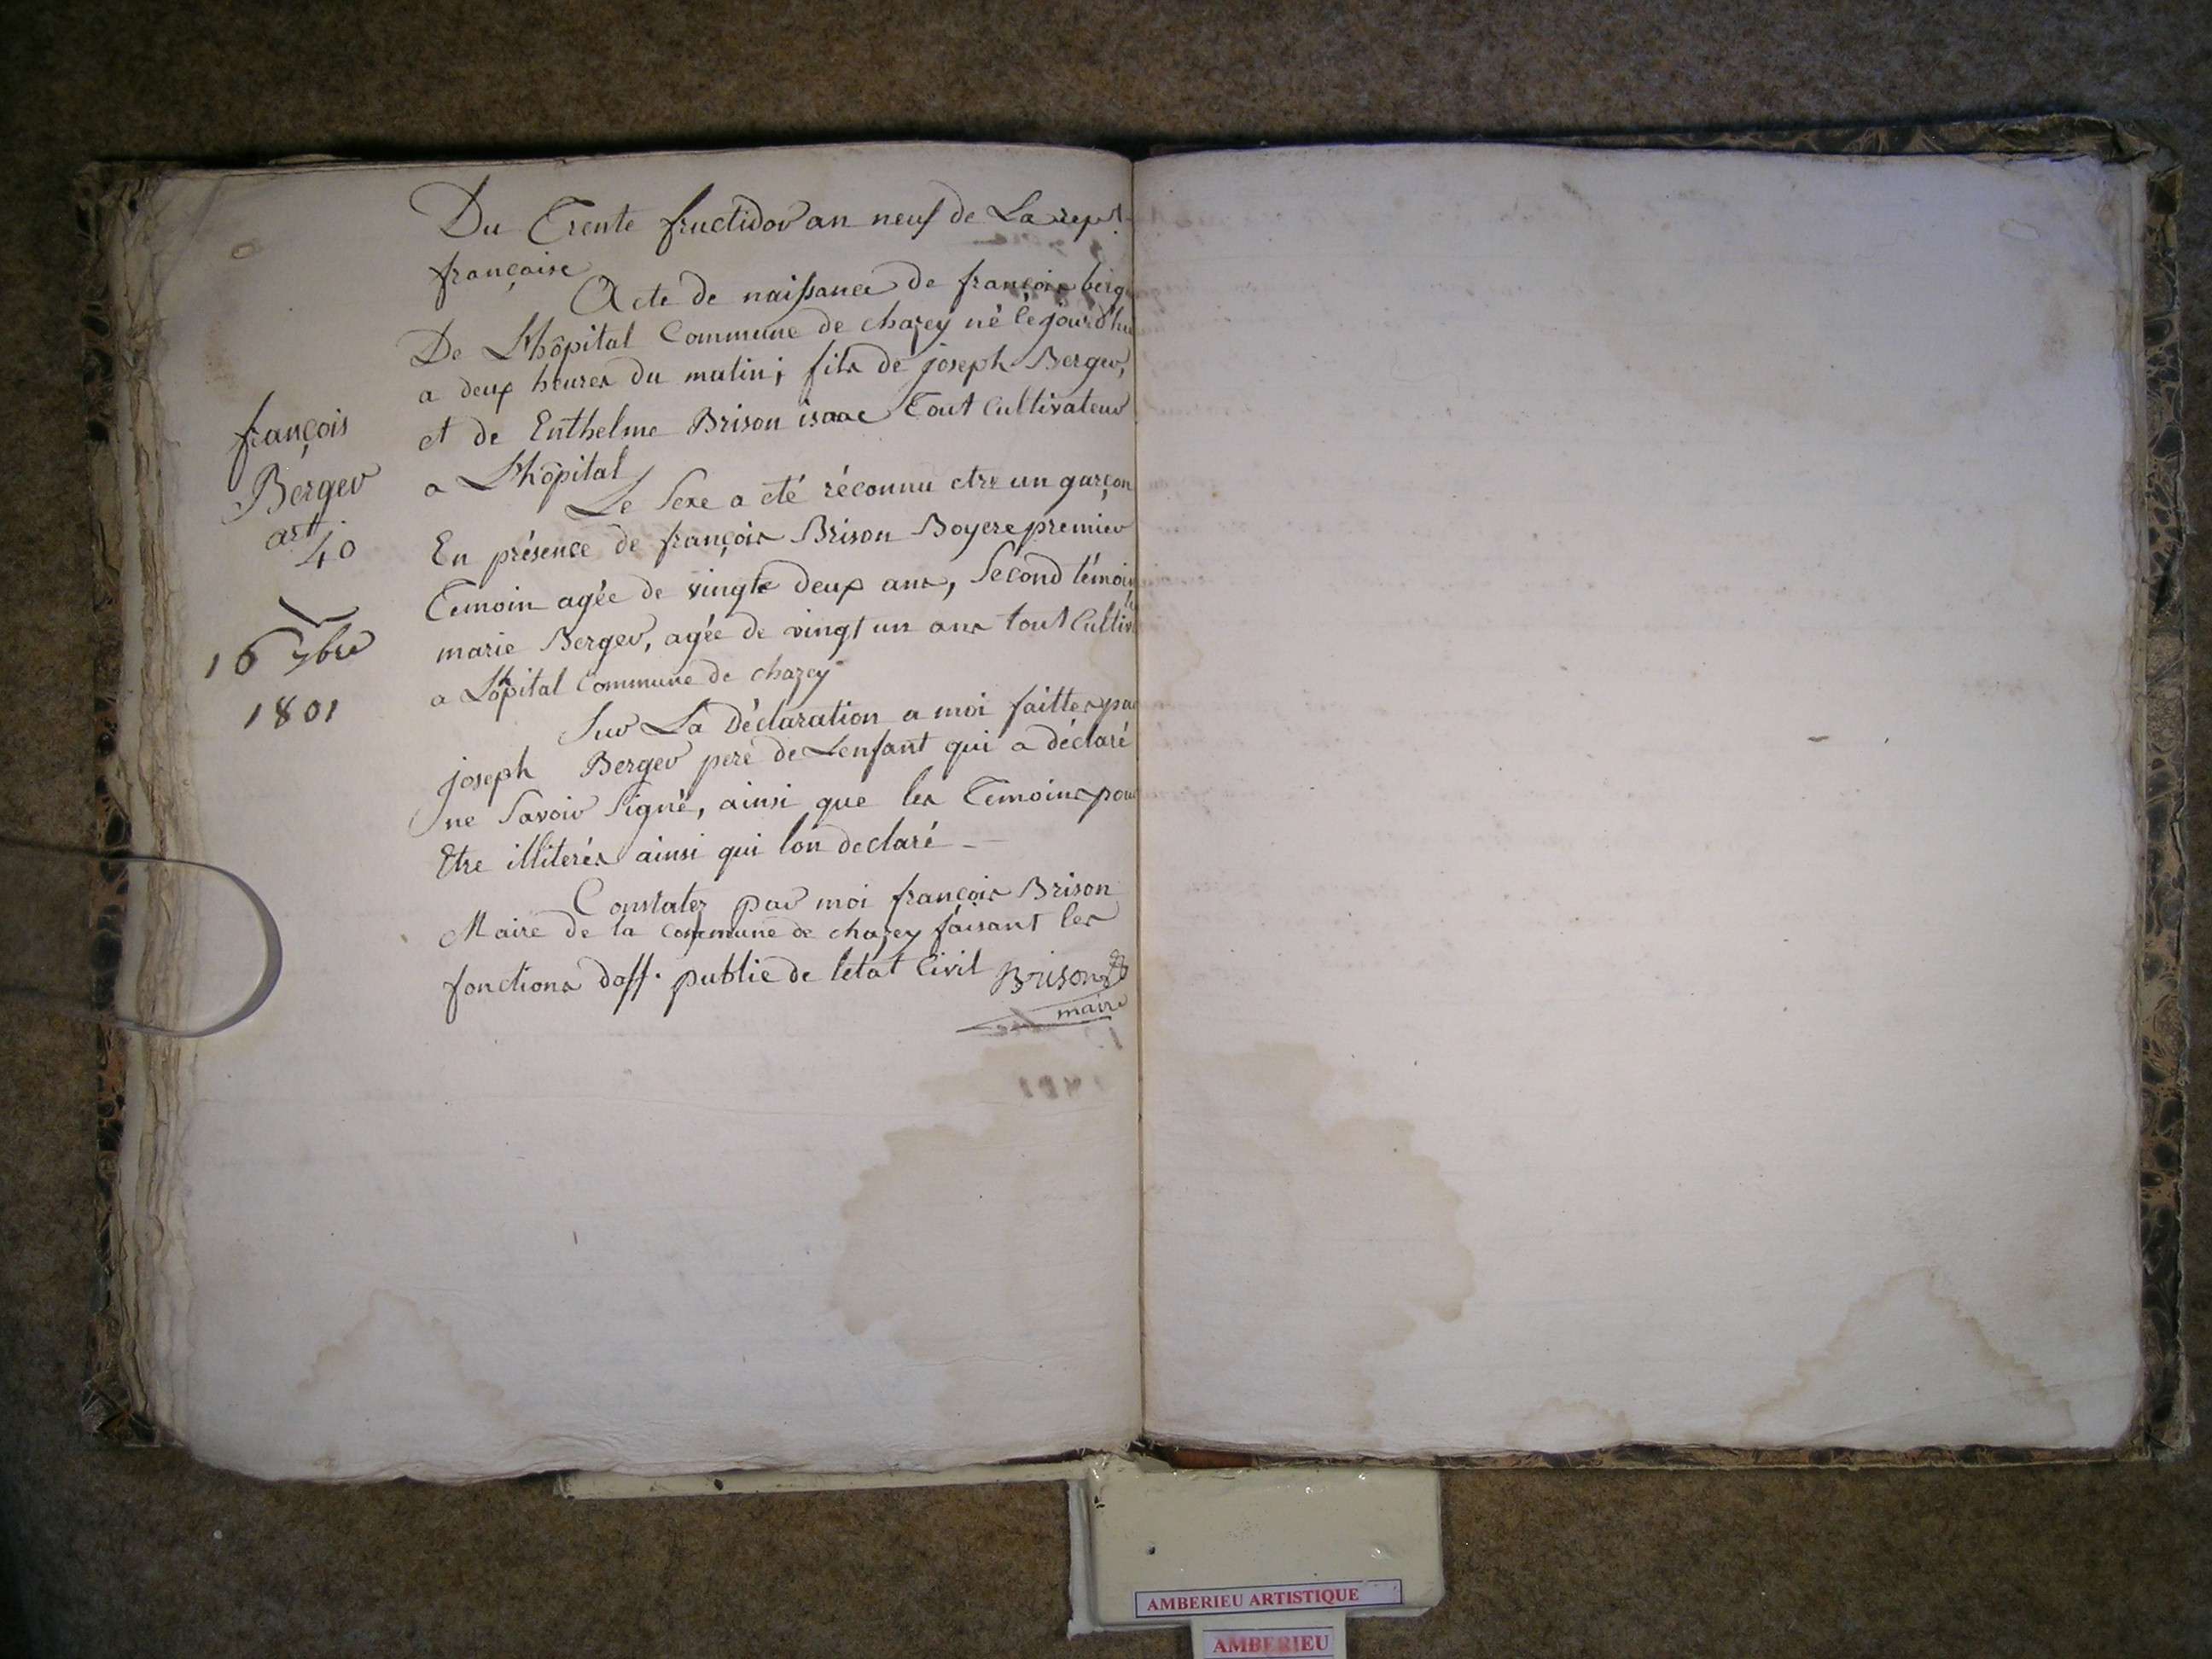 Du Trente fructidor an neuf de La rep.
française
Acte de naissance de françois berg
De Lhôpital Commune de chazey né cejourd'hu
a deux heures du matin; fils de joseph Berger,
et de Enthelme Brison isaac Tout Cultivateur
a Lhôpital
Le Sexe a eté réconnu etre un garçon
En présence de françois Brison Boyere premier
Temoin agée de vingte deux ans, Second témoin
marie Berger, agée de vingt un ans tout Cultiv
a Lhôpital Commune de chazey
Sur La Déclaration a moi faittes par
joseph Berger pere de Lenfant qui a déclaré
ne Savoir Signé, ainsi que les Temoins pour
Etre illiterés ainsi qui lon declaré
Constatez par moi françois Brison
Maire de la Commune de chazey faisant les
fonctions doff. public de letat Civil Brison
maire
françois
Berger
art.
40
16 7bre
1801
AMBERIEU ARTISTIQUE
AMBERIEU